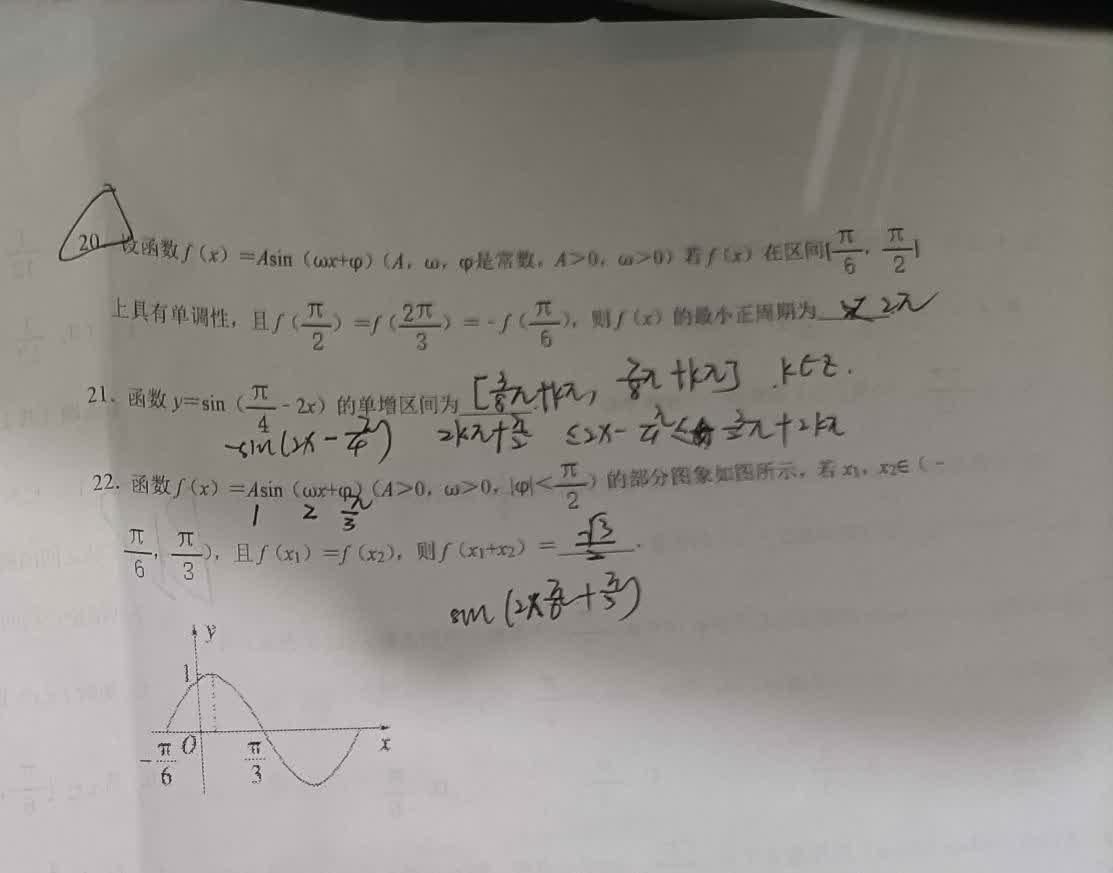 20. 设函数 f(x) =Asin(ωx+φ)(A, ω, φ是常数, A>0, ω>0) 若 f(x) 在区间[π/6, π/2]
上具有单调性, 且 f(π/2) =f(2π/3) = -f(π/6), 则 f(x) 的最小正周期为 2π
21. 函数 y=sin(π/4 - 2x) 的单增区间为 [3/8π+kπ, 7/8π+kπ] .k∈Z.
-sin(2x-π/4) 2kπ+π/2 ≤2x-π/4≤ 3/2π+2kπ
22. 函数 f(x) =Asin(ωx+φ)(A>0, ω>0, |φ|<π/2) 的部分图象如图所示, 若 x₁, x₂∈(-
1 2 π/3
π/6, π/3), 且 f(x₁) =f(x₂), 则 f(x₁+x₂) = √3/2.
sin(2×π/6+π/3)
y
1
-π/6 O π/3 x